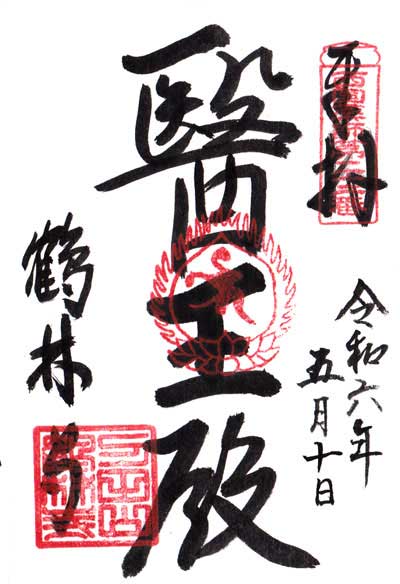 奉拝
令和六年
五月十日
醫王殿
鶴林寺